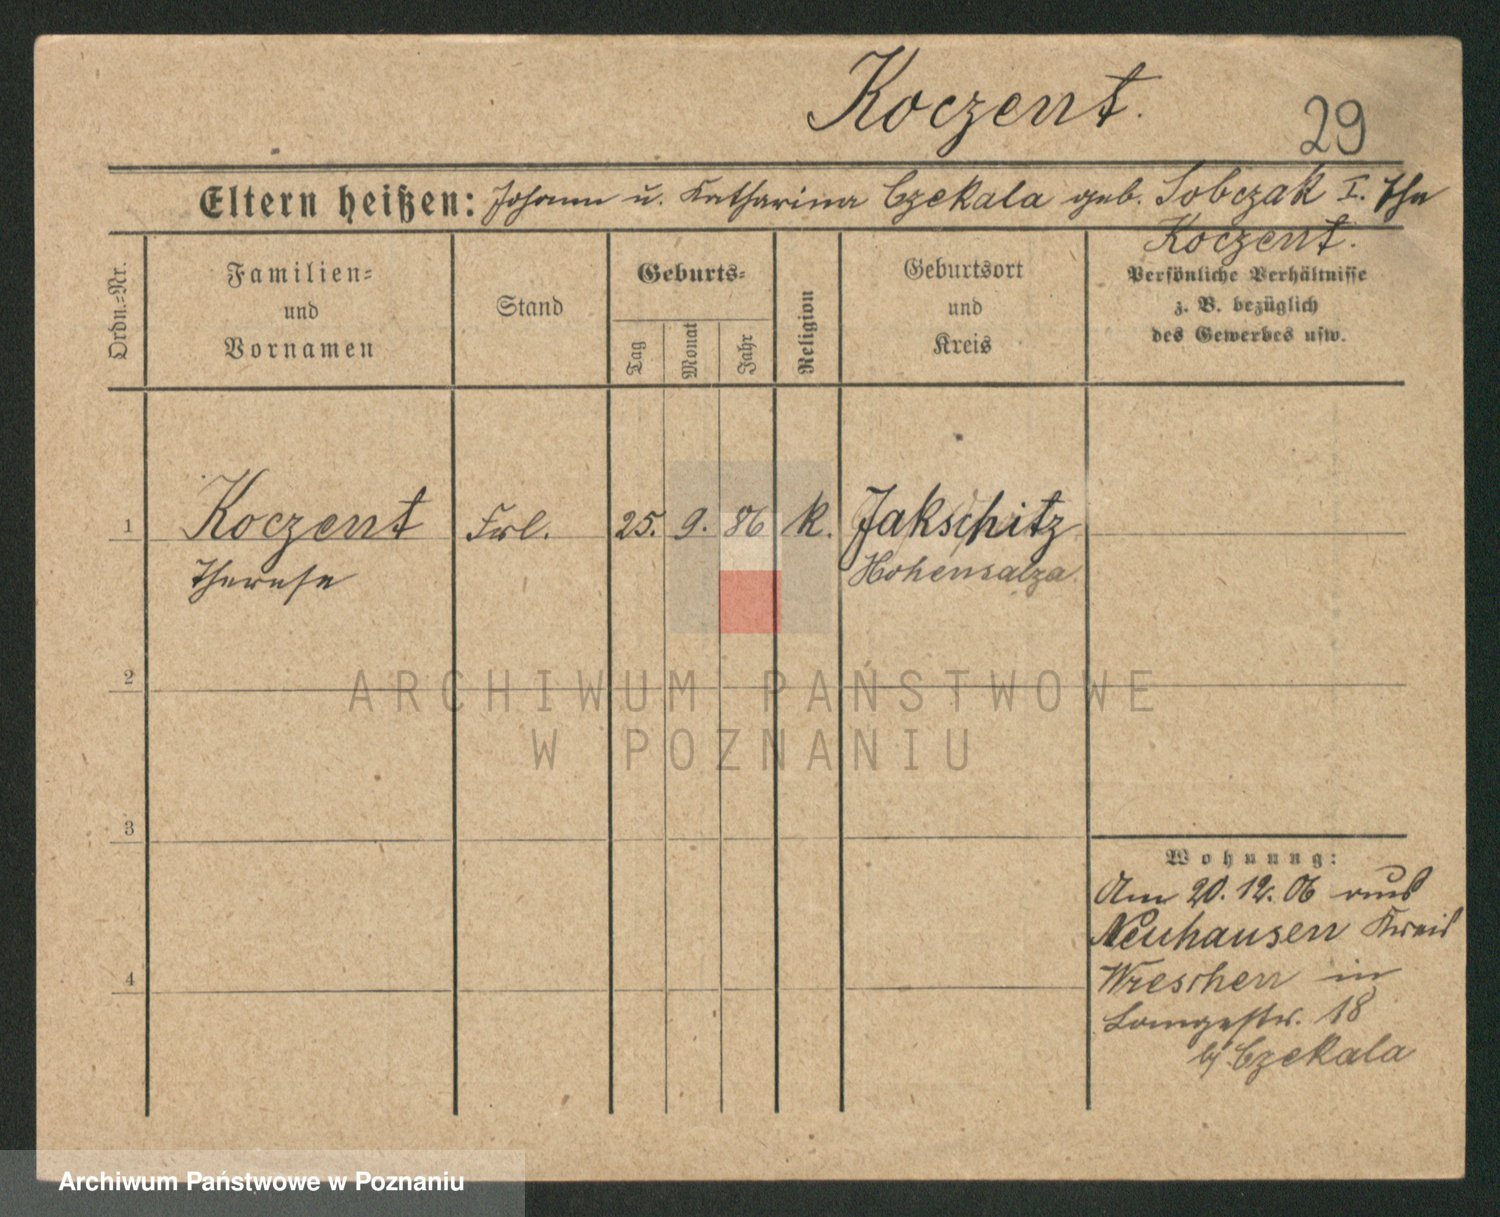 Koczent.
29
Eltern heißen: Johann u. Katharina Czekala geb. Sobczak I. Ehe
Koczent.
Ordn.-Nr.
Familien-
und
Vornamen
Stand
Geburts-
Tag
Monat
Jahr
Religion
Geburtsort
und
Kreis
Persönliche Verhältnisse
z. B. bezüglich
des Gewerbes usw.
1 Koczent Frl. 25. 9. 86 k. Jakschitz
Therese Hohensalza.
2
3
4
Wohnung:
Am 20. 12. 06 aus
Neuhausen Kreis
Wreschen in
Langestr. 18
bj Czekala
ARCHIWUM PAŃSTWOWE
W POZNANIU
Archiwum Państwowe w Poznaniu